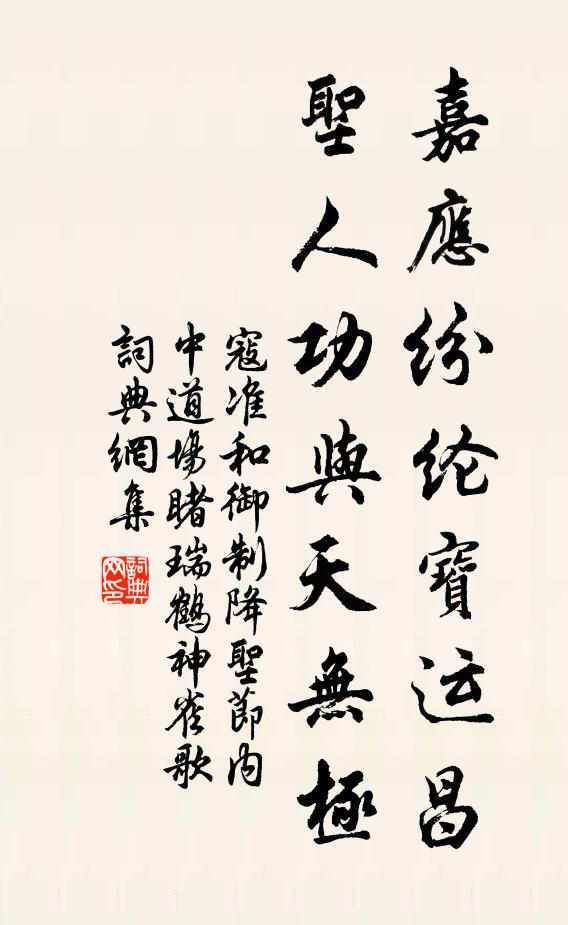 嘉應纷纶寶运昌
聖人功與天無極
寇准和御制降聖節内
中道場睹瑞鶴神雀歌
詞典網集
詞典网印